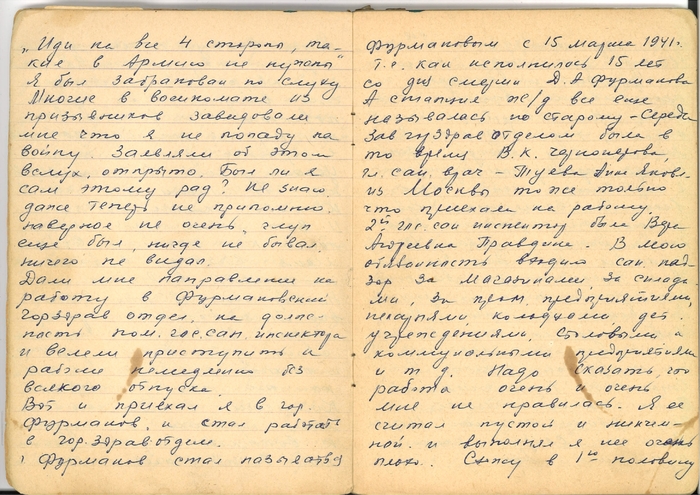 „Иди на все 4 стороны, та-
кие в Армию не нужны"
Я был забракован по слуху
Многие в военкомате из
призывников завидовали
мне что я не попаду на
войну. Заявляли об этом
вслух, открыто. Был ли я
сам этому рад? Не знаю
даже теперь не припомню,
наверное не очень, глуп
еще был, нигде не бывал,
ничего не видал.
Дали мне направление на
работу в Фурмановский
горздрав отдел, на долж-
ность пом. гос. сан. инспектора
и велели приступить к
работе немедленно без
всякого отпуска.
Вот и приехал я в гор.
Фурманов, и стал работать
в гор. здравотделе.
Фурманов стал называться
Фурмановым с 15 марта 1941 г.
т.е. как исполнилось 15 лет
со дня смерти Д. А Фурманова
А станция ж/д все еще
называлась по старому - Середа
Зав гуздравотделом была в
то время В. К. Черномерова,
гл. сан. врач - Туева Анна Яковл.
из Москвы тоже только
что приехала на работу.
2ым гос. сан инспектор была Вера
Андреевна Правдина. В мою
обязанность входило сан. над-
зор за магазинами, за склада-
ми, за пром. предприятиями,
пекарнями колодцами дет.
учреждениями, столовыми и
коммунальными предприятиями
и т д. Надо сказать, что
работа очень и очень
мне не нравилась. Я ее
считал пустой и никчем-
ной. и выполнял я ее очень
плохо. в 1ую половину